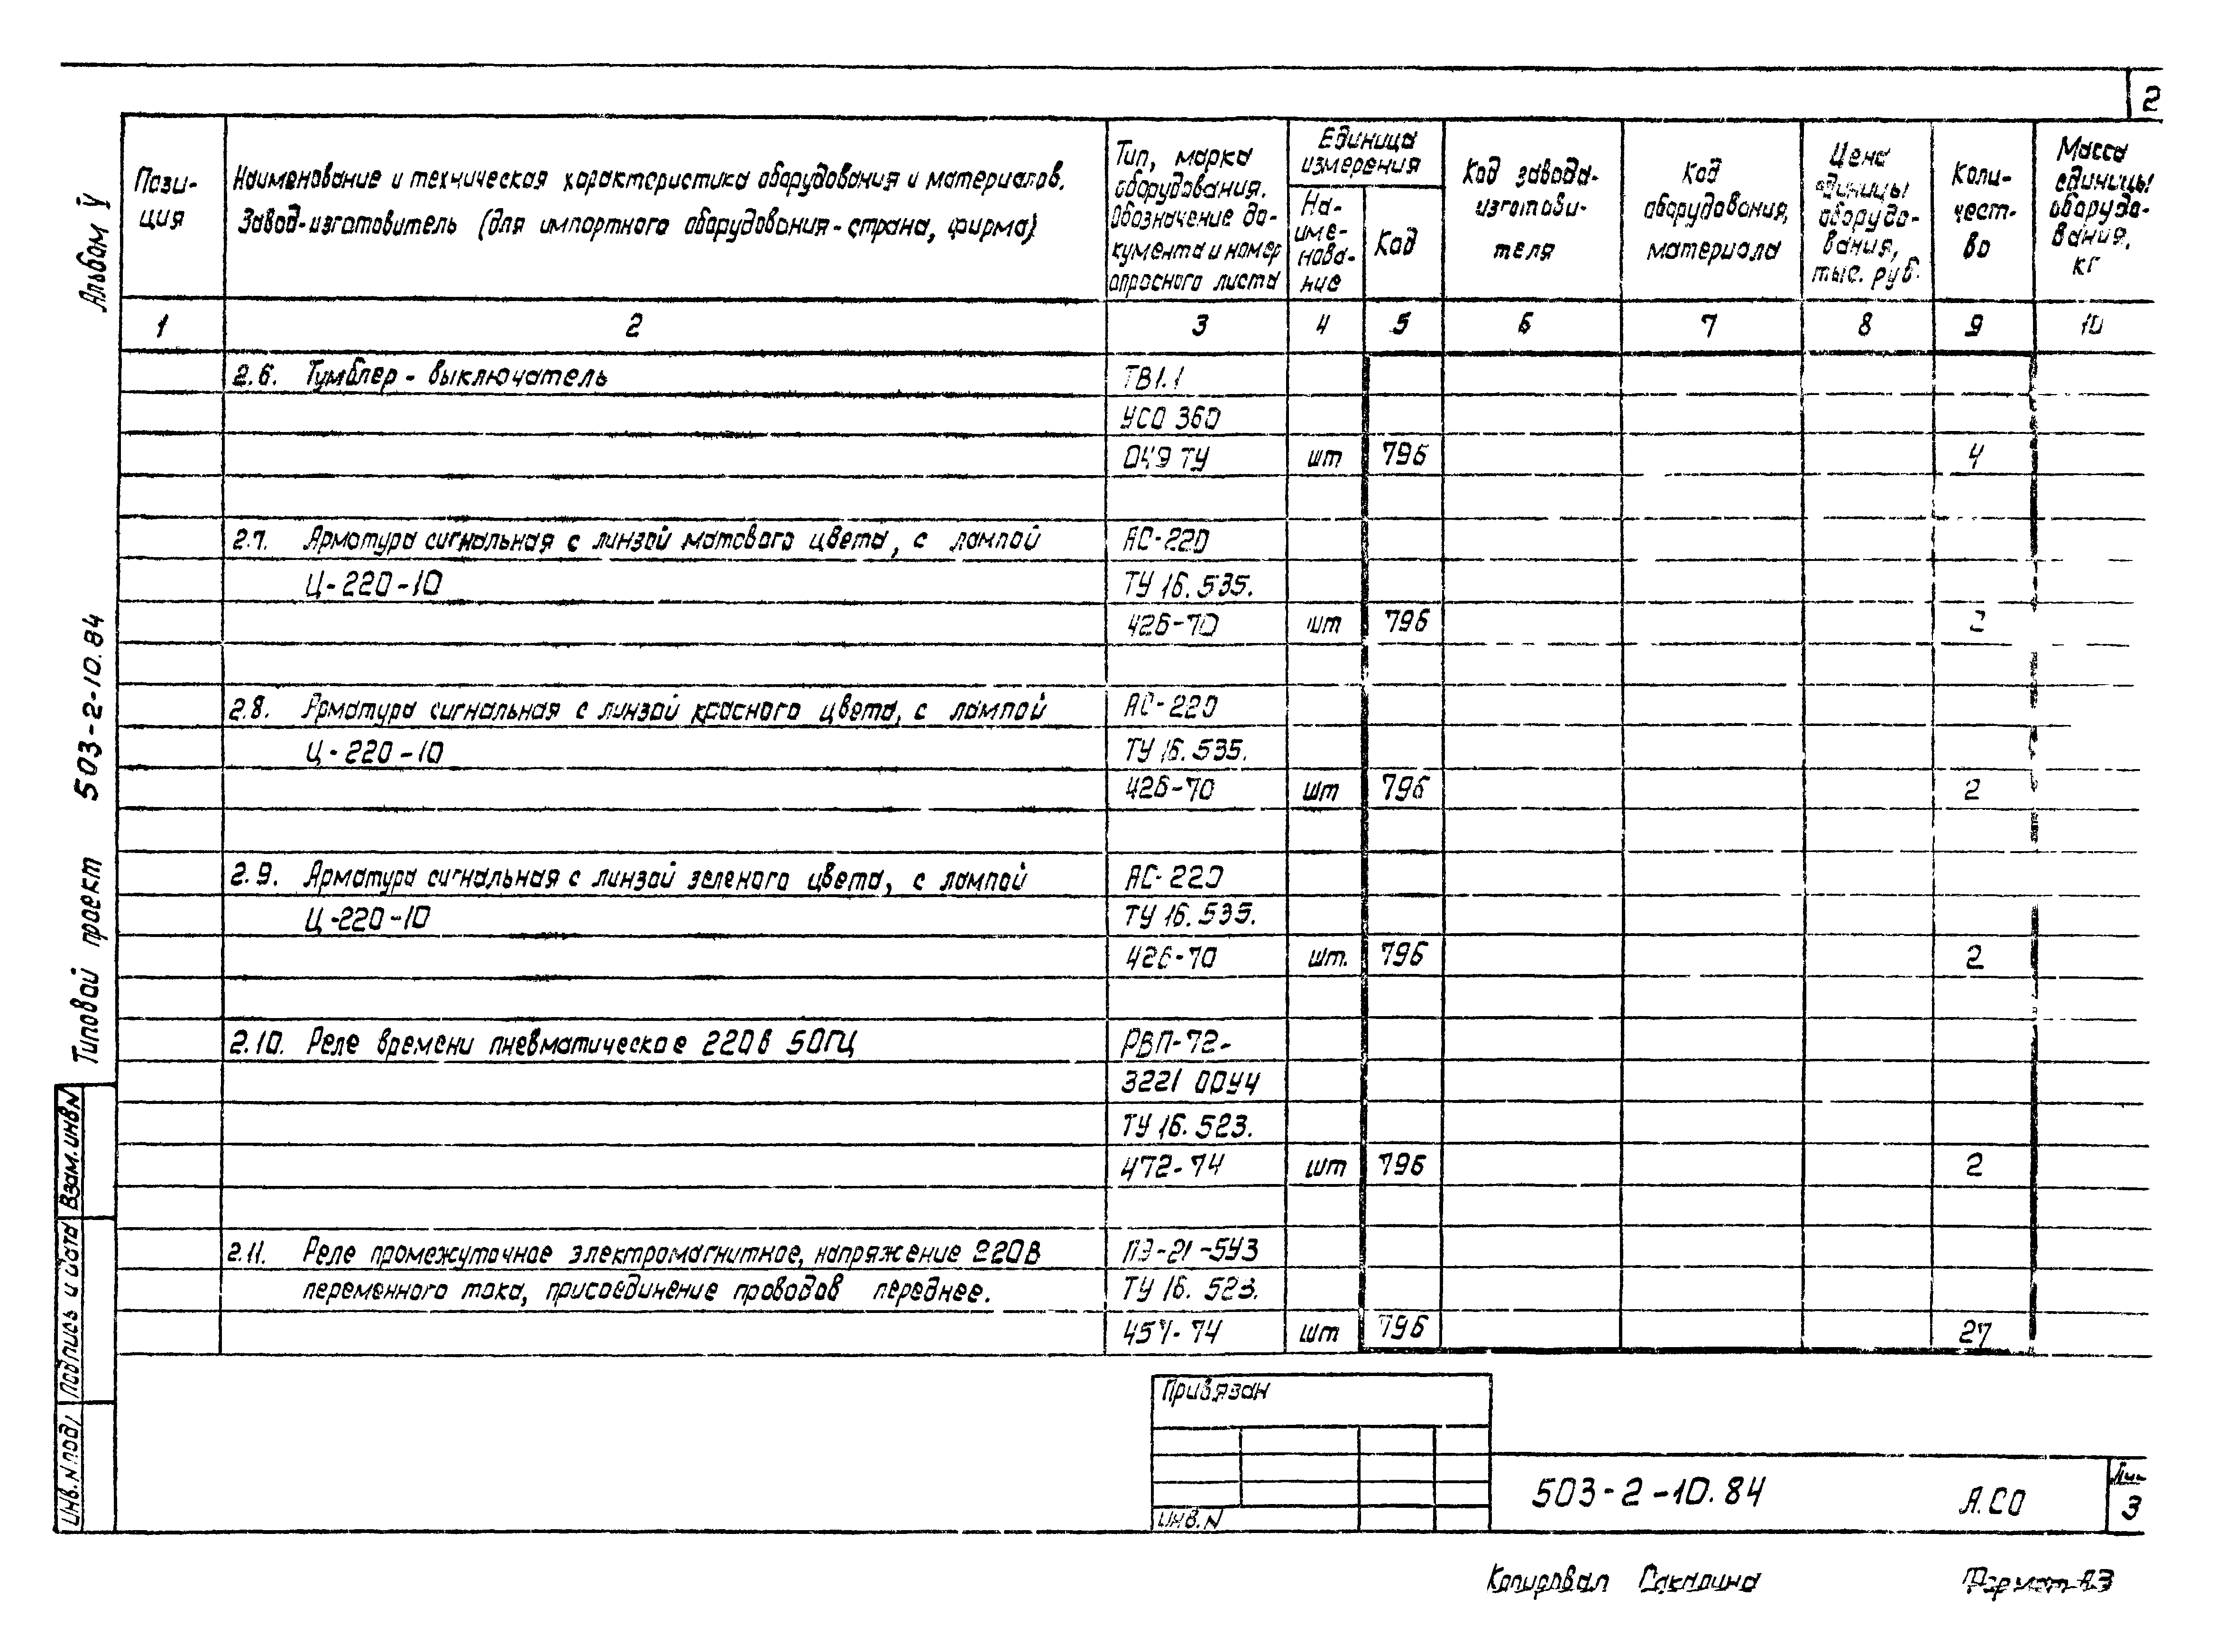 2
Альбом V
Типовой проект 503-2-10.84
Взам.инв.N
Подпись и дата
Инв.N подл
Пози-
ция
Наименование и техническая характеристика оборудования и материалов.
Завод-изготовитель (для импортного оборудования - страна, фирма)
Тип, марка
оборудования.
Обозначение до-
кумента и номер
опросного листа
Единица
измерения
На-
име-
нова-
ние
Код
Код завода-
изготови-
теля
Код
оборудования,
материала
Цена
единицы
оборудо-
вания,
тыс. руб.
Коли-
чест-
во
Масса
единицы
оборудо-
вания,
кг
1 2 3 4 5 6 7 8 9 10
2.6. Тумблер - выключатель ТВ1.1
УСО 360
049 ТУ шт 796 4
2.7. Арматура сигнальная с линзой матового цвета, с лампой АС-220
Ц-220-10 ТУ 16.535.
426-70 шт 796 2
2.8. Арматура сигнальная с линзой красного цвета, с лампой АС-220
Ц-220-10 ТУ 16.535.
426-70 шт 796 2
2.9. Арматура сигнальная с линзой зеленого цвета, с лампой АС-220
Ц-220-10 ТУ 16.535.
426-70 шт. 796 2
2.10. Реле времени пневматическое 220в 50ГЦ РВП-72-
3221 00У4
ТУ 16.523.
472-74 шт 796 2
2.11. Реле промежуточное электромагнитное, напряжение 220В ПЭ-21-5У3
переменного тока, присоединение проводов переднее. ТУ 16. 523.
457-74 шт 796 27
Привязан
Инв.N
503-2-10.84 А.СО
Лис
3
Копировал Формат А3